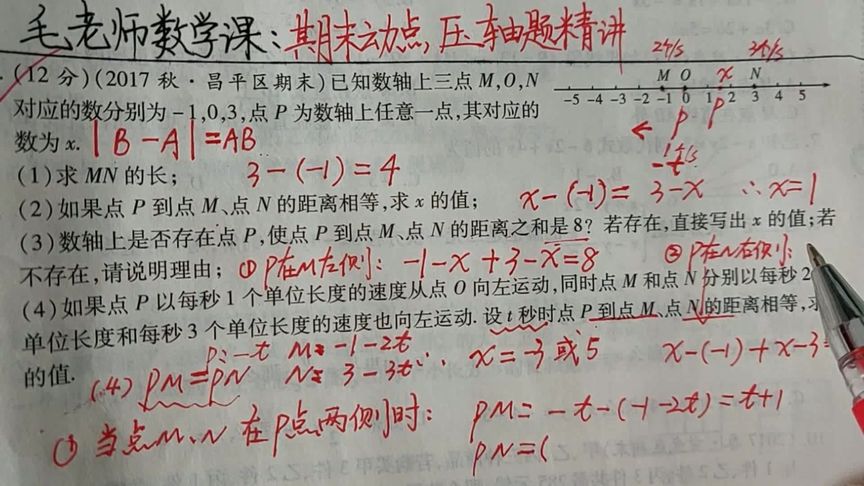 毛老师数学课:期末动点,压轴题精讲
2个/s 3个/s
M O x N
-5 -4 -3 -2 -1 0 1 2 3 4 5
(12分)(2017秋·昌平区期末)已知数轴上三点M,O,N
对应的数分别为-1,0,3,点P为数轴上任意一点,其对应的
← P P
数为x. |B-A|=AB
1个/s
-t
(1)求MN的长; 3-(-1)=4
(2)如果点P到点M、点N的距离相等,求x的值; x-(-1)= 3-x ∴x=1
(3)数轴上是否存在点P,使点P到点M、点N的距离之和是8?若存在,直接写出x的值;若
不存在,请说明理由; ①P在M左侧: -1-x+3-x=8 ②P在N右侧:
(4)如果点P以每秒1个单位长度的速度从点O向左运动,同时点M和点N分别以每秒2
单位长度和每秒3个单位长度的速度也向左运动.设t秒时点P到点M、点N的距离相等,求
的值. P:-t M:-1-2t ∴x=-3或5 x-(-1)+x-3=
(4) PM=PN N:3-3t
① 当点M、N在P点两侧时: PM=-t-(-1-2t)=t+1
PN=(